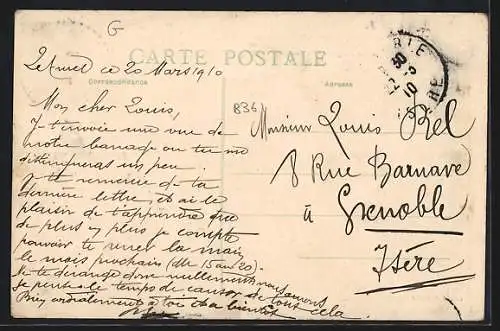 G
CARTE POSTALE
ce 20 Mars 1910
Correspondance
Adresse
836
Mon cher Louis,
Je t'envoie une vue de
notre où tu me
distingueras un peu
Je te remercie de ta
dernière lettre, et ai le
plaisir de t'apprendre que
de plus en plus je compte
pouvoir te serrer la main
le mois prochain (du 15 au 20).
Ne te dérange donc nullement nous aurons
je pense le temps de causer de tout cela.
Bien cordialement à toi et à bientôt
Monsieur Louis Bel
8 Rue Barnave
à
Grenoble
Isère